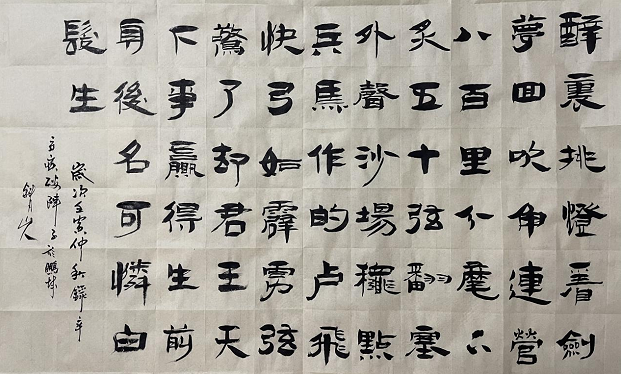 醉裏挑燈看劍
夢回吹角連營
八百里分麾下
炙五十弦翻塞
外聲沙場龝點
兵馬作的卢飛
快弓如霹雳弦
驚了却君王天
下事贏得生前
身後名可憐白
髮生
歲次壬寅仲秋錄辛
弃疾破陣子於鵬城